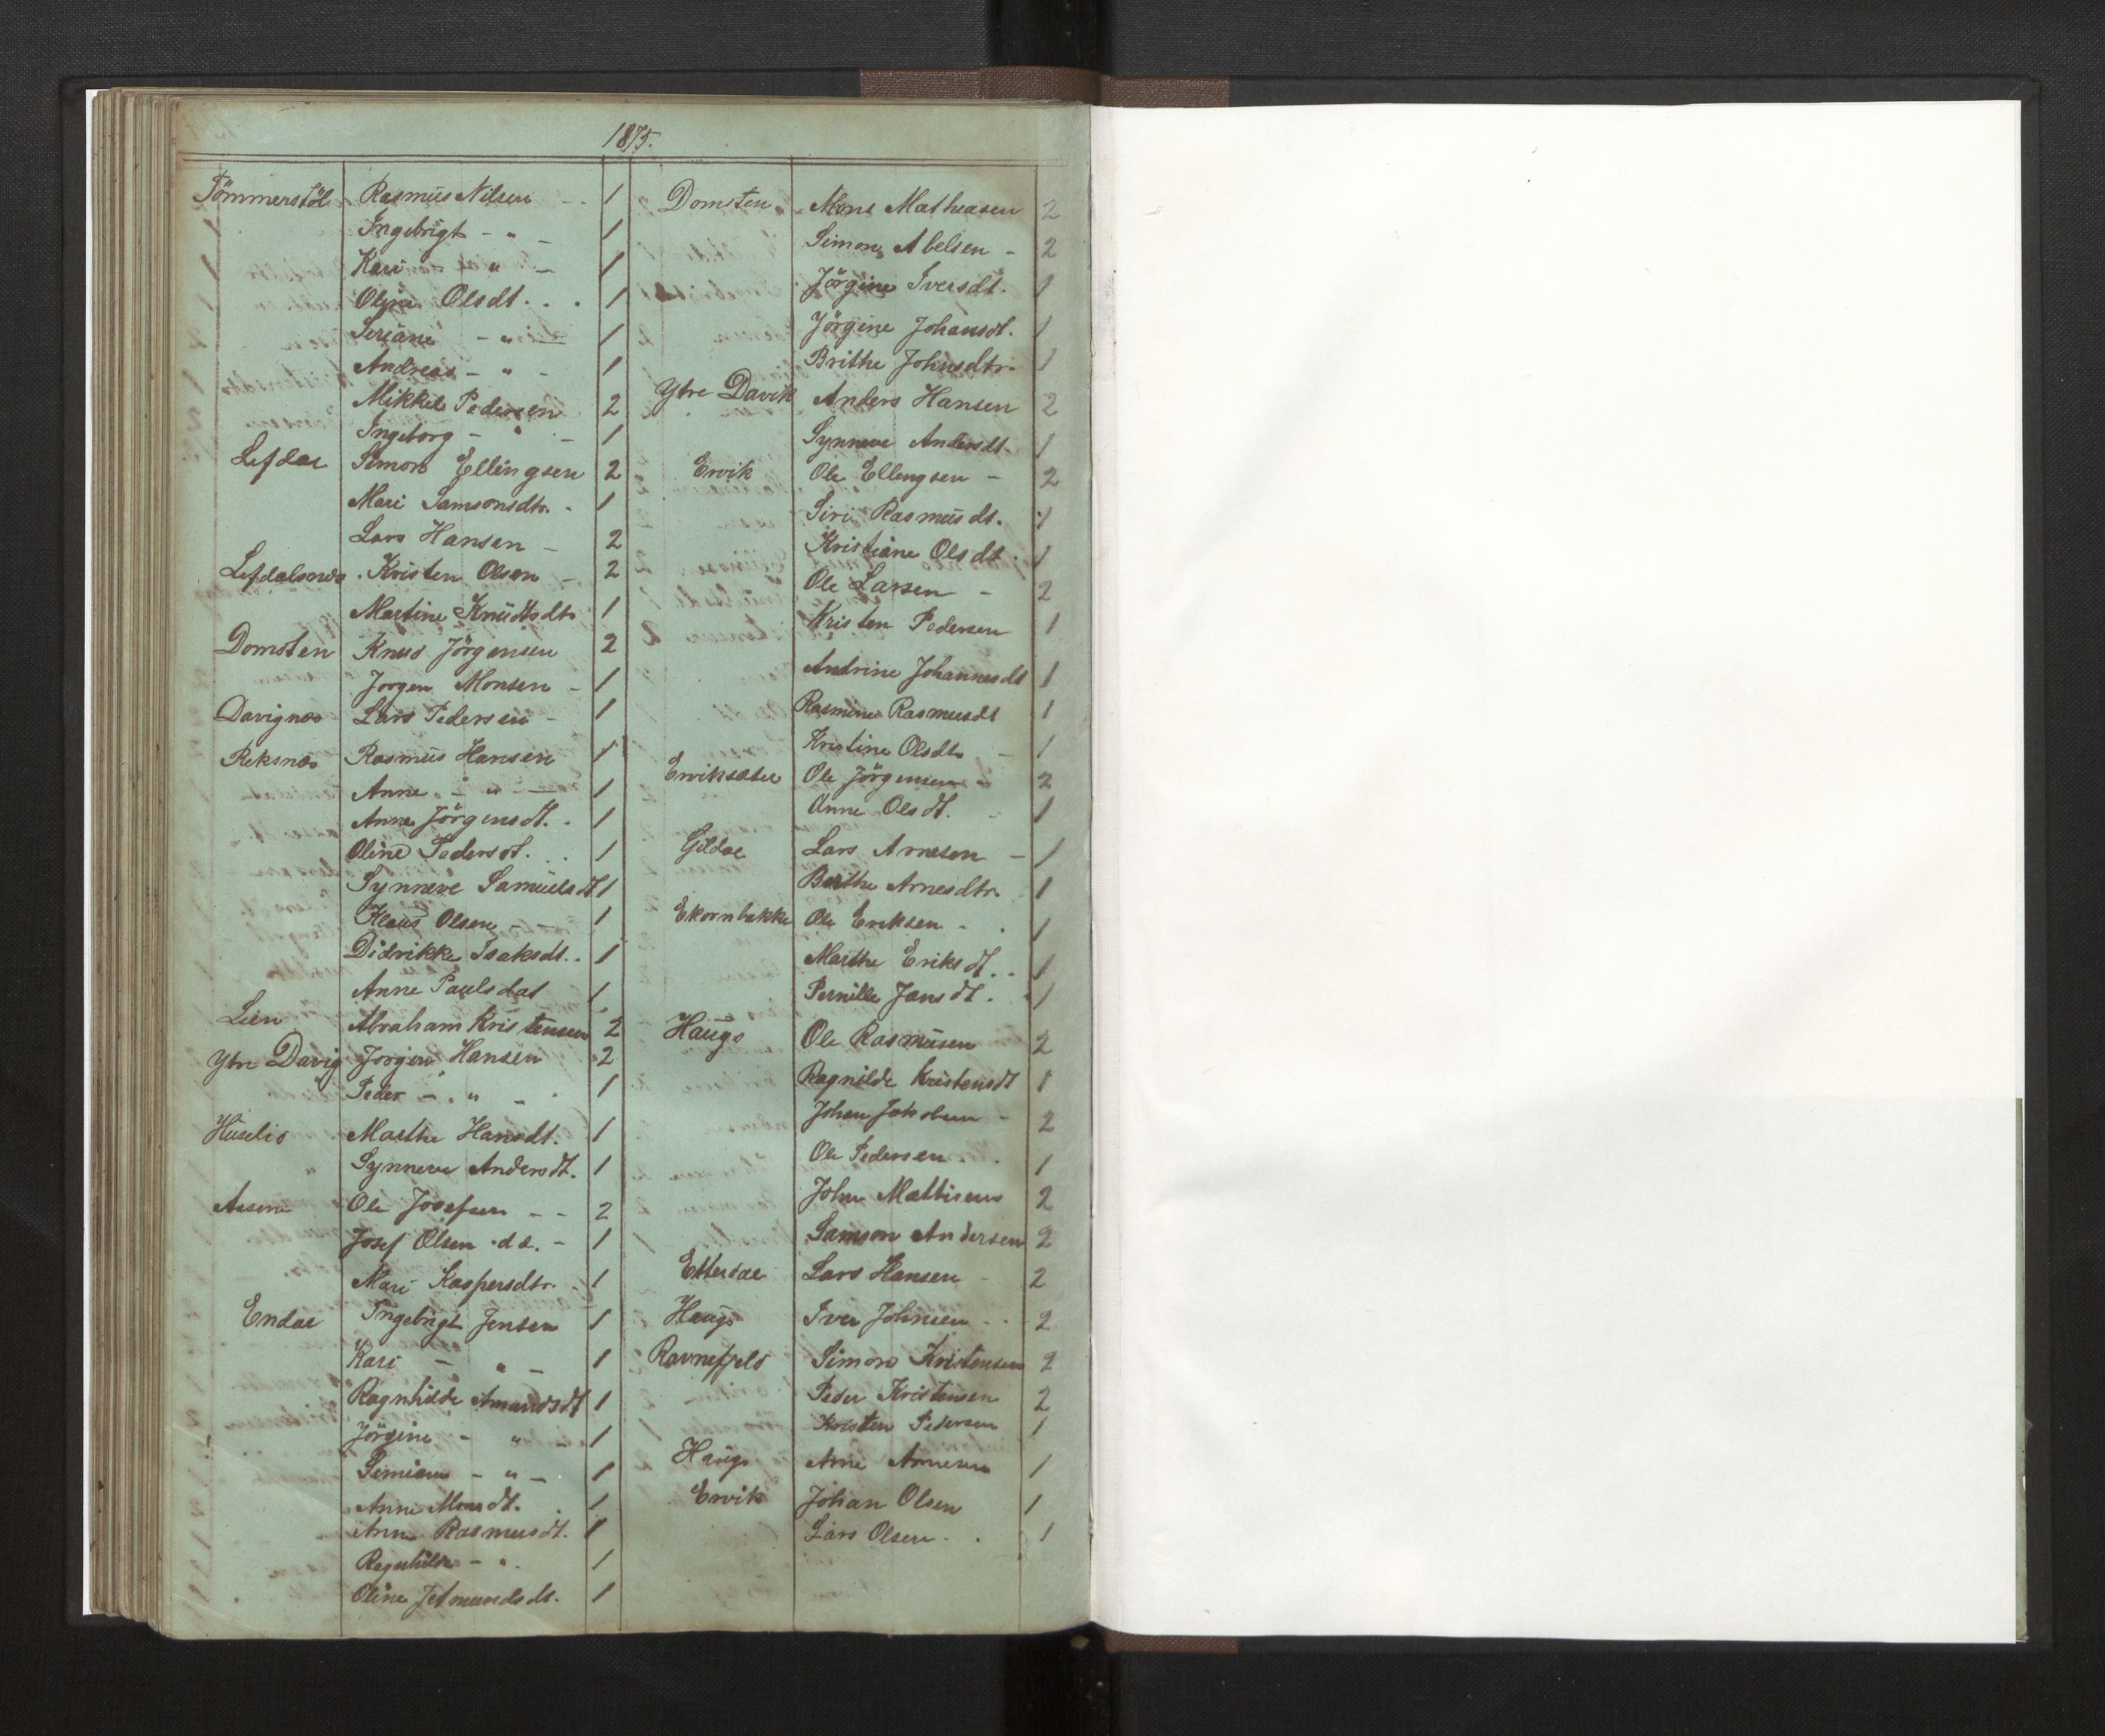 1875.
Tömmerstöl Rasmus Nilsen - . 1
Ingebrigt - " - 1
Kari " - 1
Oline Olsdt. . . 1
Seriane - " - 1
Andreas - " - 1
Mikkel Pedersen 2
Ingeborg - " - 1
Lefdal Simon Ellingsen 2
Mari Samsonsdtr. - 1
Lars Hansen - 2
Lefdalsnæs Kristen Olsen - 2
Martine Knudtsdtr 1
Domsten Knud Jörgensen 2
Jorgen Monsen - 1
Davignæs Lars Pedersen - 1
Reksnæs Rasmus Hansen 1
Anne - " - 1
Anne Jörgensdt. . 1
Oline Pedersdt. . . 1
Synneve Samuelsdt 1
Klaus Olsen - 1
Didrikke Isaksdt. . 1
Anne Paulsdat 1
Lien Abraham Kristensen 2
Ytre Davig Jorgen Hansen 2
Peder - " - 1
Huselid Marthe Hansdt. 1
Synneve Andersdt. 1
Aasene Ole Josefsen - - 2
Josef Olsen d.æ. - 1
Mari Kaspersdtr. . 1
Endal Ingebrigt Jensen 1
Kari - " - 1
Ragnhilde Amundsdt 1
Jörgine - " - 1
Simiane - " - 1
Anne Monsdt. . 1
Anne Rasmusdt. 1
Ragnhilde - " . 1
Oline Jetmundsdt. 1
Domsten Mons Matheasen 2
Simon Abelsen - 2
Jörgine Iversdt. 1
Jörgine Johansdt. 1
Brithe Johnsdtr. 1
Ytre Davik Anders Hansen 2
Synneve Andersdt. 1
Ervik Ole Ellengsen - 2
Siri Rasmusdt. 1
Kristiane Olsdt. 1
Ole Larsen - 2
Kristen Pedersen 1
Andrine Johannesdt 1
Rasmine Rasmusdt 1
Kristine Olsdtr - 1
Erviksæter Ole Jörgensen - 2
Anne Olsdt. - 1
Gildal Lars Arnesen - 1
Berthe Arnesdtr. 1
Ekornbakke Ole Eriksen - . 1
Marthe Eriksdt. . 1
Pernille Jansdt. . 1
Haugs Ole Rasmusen 2
Ragnilde Kristensdt 1
Johan Jakobsen - 2
Ole Pedersen . . 1
John Mathisens 2
Samson Andersen 2
Etterdal Lars Hansen - 2
Haugs Iver Johnsen . . 2
Ravnefjeld Simon Kristensen 2
Peder Kristensen 2
Kristen Pedersen 1
Haugs Arne Arnesen 1
Ervik Johan Olsen 1
Lars Olsen . . 1